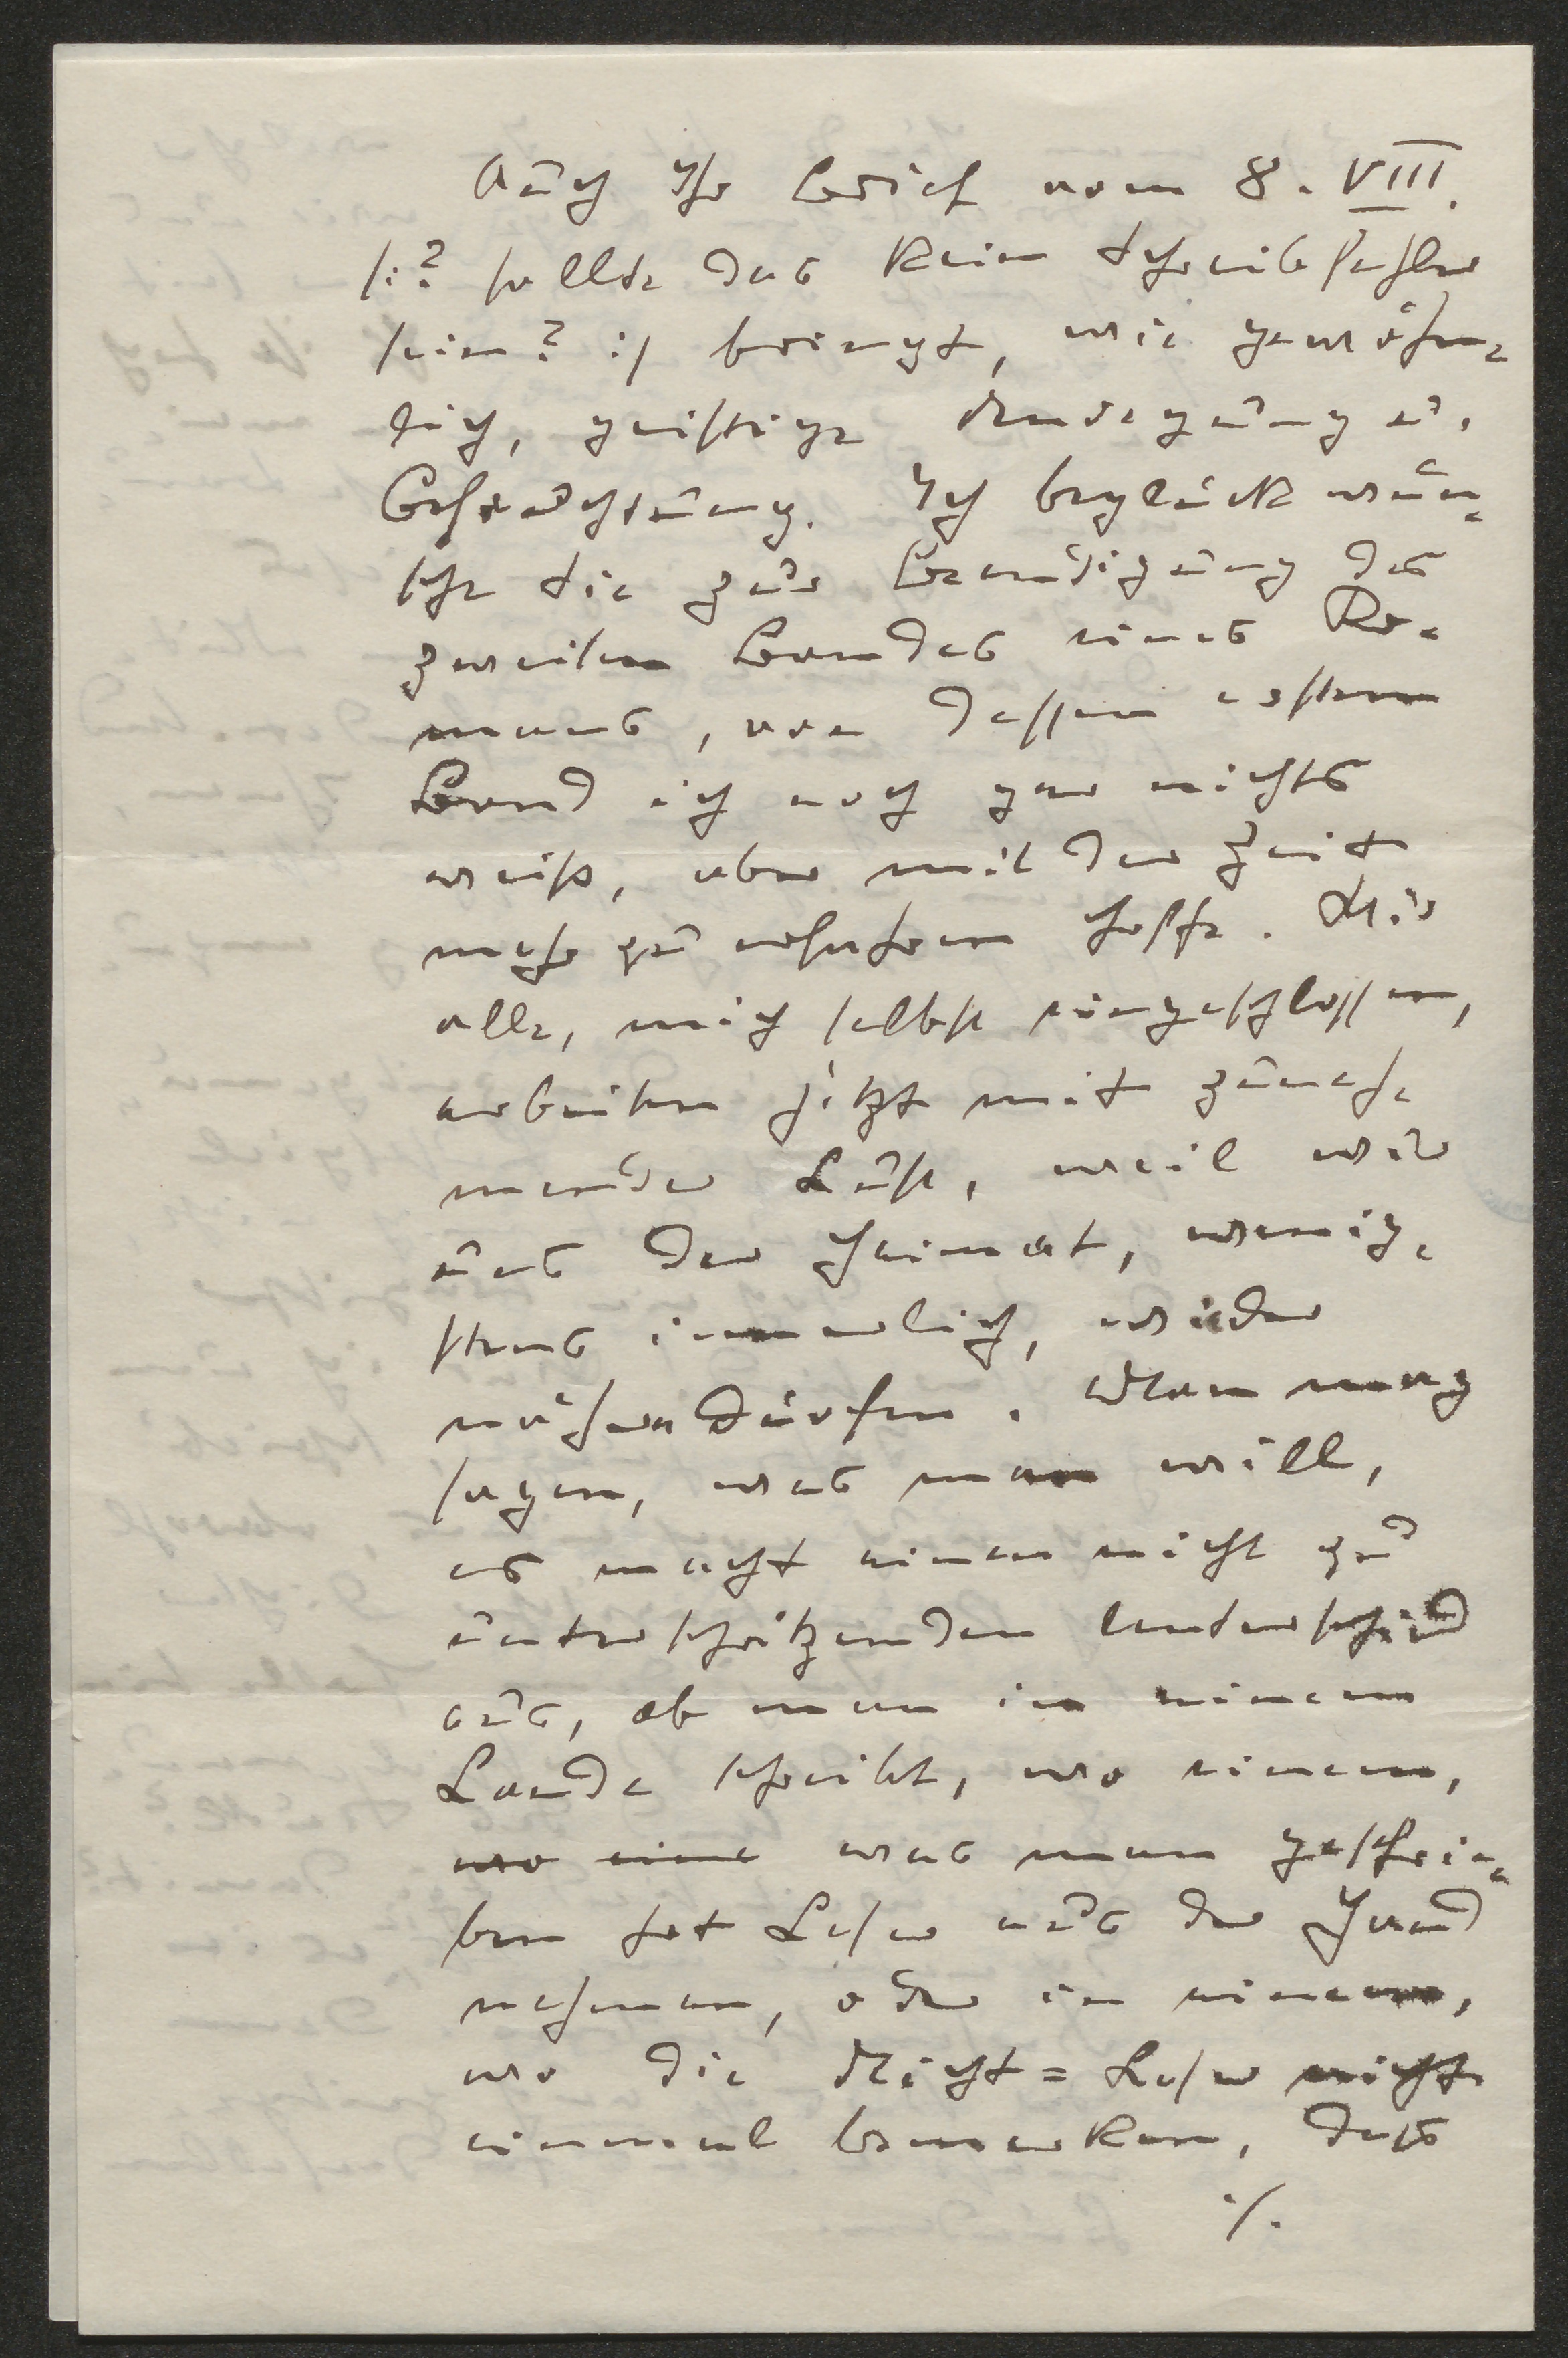 Auch Ihr Brief vom 8. VIII.
/:? sollte das kein Schreibfehler
sein? :/ bringt, wie gewöhn-
lich, geistige Anregung u.
Befruchtung. Ich beglückwün-
sche Sie zur Beendigung des
zweiten Bandes eines Ro-
mans, von dessen erstem
Band ich noch gar nichts
weiß, aber mit der Zeit
mehr zu erfahren hoffe. Wir
alle, mich selbst eingeschlossen,
arbeiten jetzt mit zuneh-
mender Lust, weil wir
uns der Heimat, wenig-
stens innerlich, wieder
nähern dürfen. Man mag
sagen, was man will,
es macht einen nicht zu
unterschätzenden Unterschied
aus, ob man in einem
Lande schreibt, wo einem,
wo eine was man geschrie-
ben hat Leser aus der Hand
nehmen, oder in einem,
wo die Nicht=Leser nicht
einmal bemerken, daß
./.